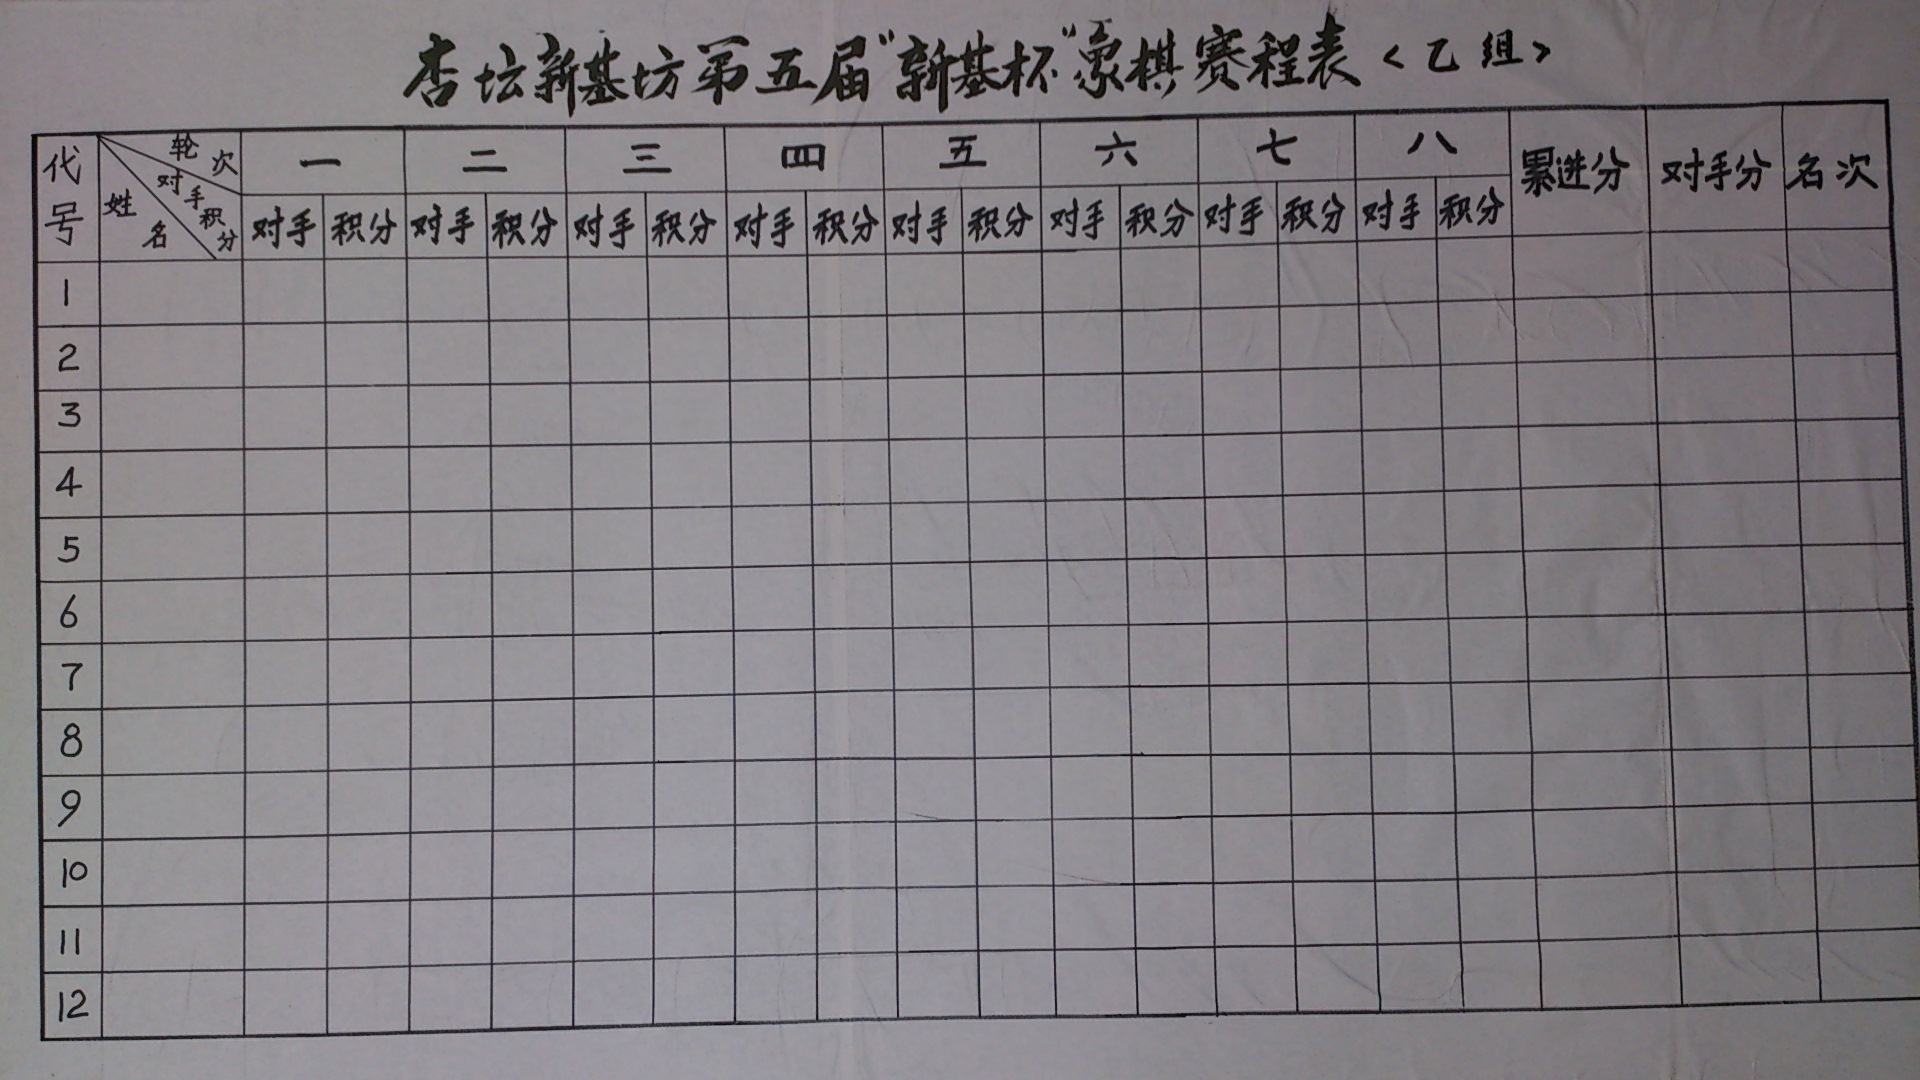 杏坛新基坊第五届“新基杯”象棋赛程表〈乙组〉
代号 轮次 对手积分 姓名 一 二 三 四 五 六 七 八 累进分 对手分 名次
对手 积分 对手 积分 对手 积分 对手 积分 对手 积分 对手 积分 对手 积分 对手 积分
1
2
3
4
5
6
7
8
9
10
11
12